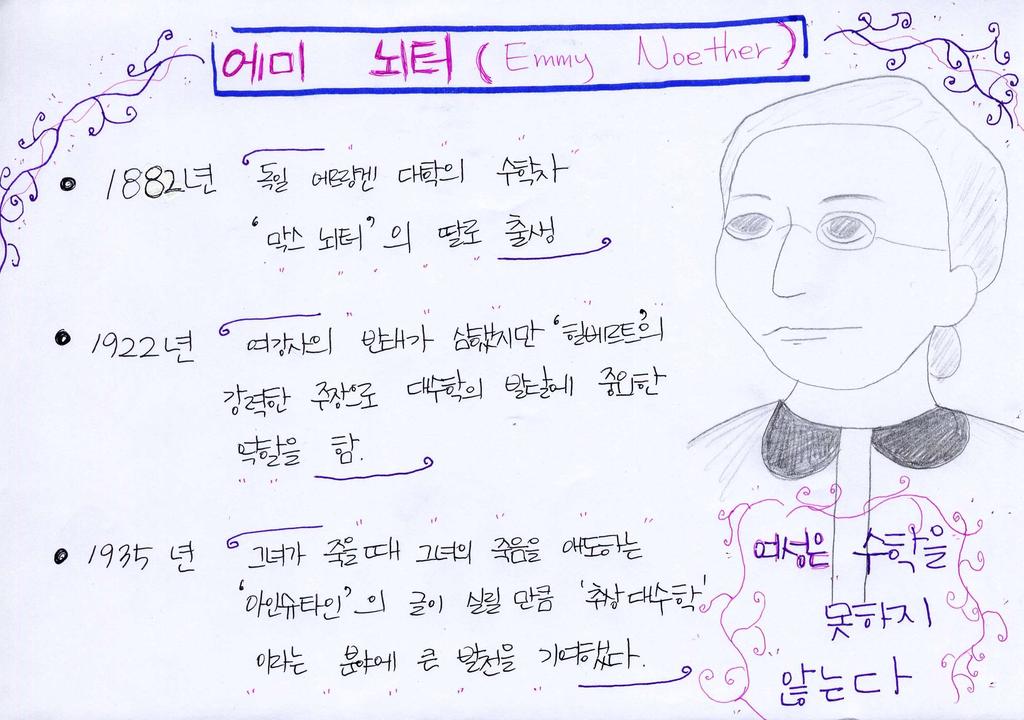 에미 뇌터 (Emmy Noether)
• 1882년 독일 에르랑겐 대학의 수학자
'막스 뇌터'의 딸로 출생
• 1922년 여강사의 반대가 심했지만 '힐베르트'의
강력한 주장으로 대수학의 발달에 중요한
역할을 함.
• 1935년 그녀가 죽을때 그녀의 죽음을 애도하는
'아인슈타인'의 글이 실릴 만큼 '추상대수학'
이라는 분야에 큰 발전을 기여했다.
여성은 수학을
못하지
않는다